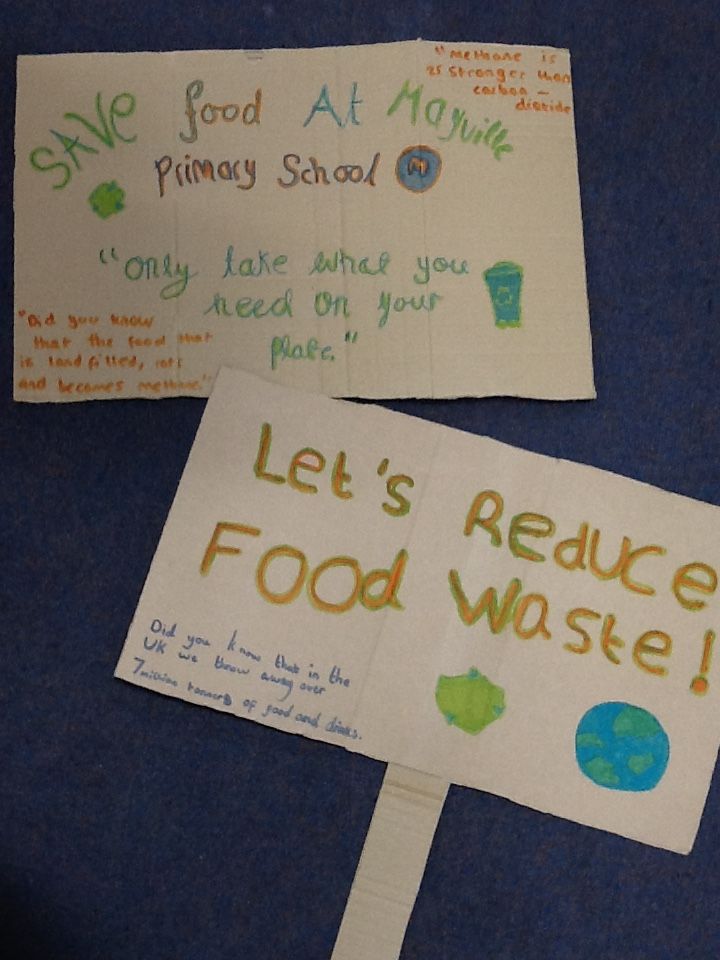 SAVE food At Mayville
Primary School M
"Methane is
25 stronger than
carbon -
dioxide
"Only take what you
need on your
plate."
"Did you know
that the food that
is landfilled, rots
and becomes methane."
Let's Reduce
Food Waste!
Did you know that in the
UK we throw away over
7 million tonnes of food and drinks.